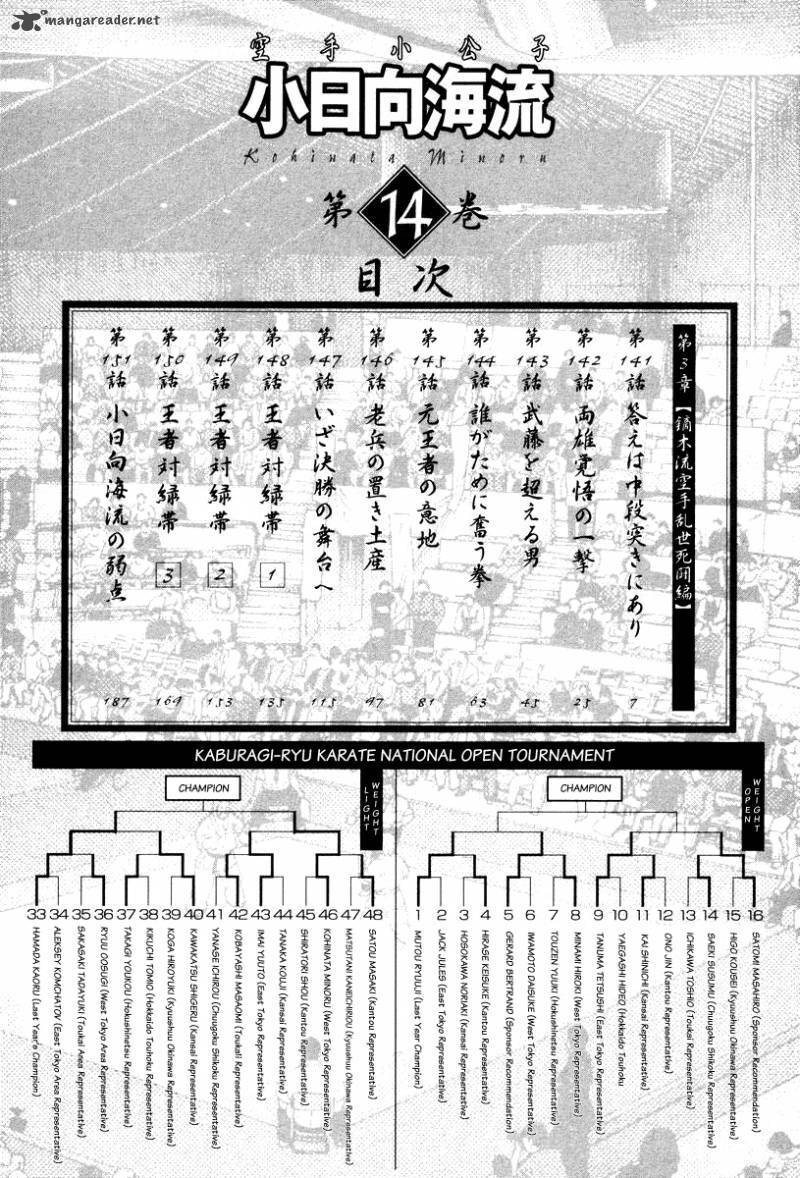 mangareader.net
空手小公子
小日向海流
Kohinata Minoru
第14巻
目次
第3章【鏑木流空手乱世死闘編】
第141話 答えは中段突きにあり 7
第142話 両雄覚悟の一撃 25
第143話 武藤を超える男 45
第144話 誰がために奮う拳 63
第145話 元王者の意地 81
第146話 老兵の置き土産 97
第147話 いざ決勝の舞台へ 115
第148話 王者対緑帯 1 135
第149話 王者対緑帯 2 153
第150話 王者対緑帯 3 169
第151話 小日向海流の弱点 187
KABURAGI-RYU KARATE NATIONAL OPEN TOURNAMENT
CHAMPION
LIGHT WEIGHT
33 HAMADA KAORU (Last Year's Champion)
34 ALEKSEY KOMCHATOV (East Tokyo Area Representative)
35 SAKASAKI TADAYUKI (Toukai Area Representative)
36 RYUU OOSUGI (West Tokyo Area Representative)
37 TAKAGI YOUKOU (Hokushinetsu Representative)
38 KIKUCHI TOMIO (Hokkaido Touhoku Representative)
39 KOGA HIROYUKI (Kyuushuu Okinawa Representative)
40 KAWAKATSU SHIGERU (Kansai Representative)
41 YANASE ICHIROU (Chuugoku Shikoku Representative)
42 KOBAYASHI MASAOMI (Toukai Representative)
43 IMAI YUUTO (East Tokyo Representative)
44 TANAKA KOUJI (Kansai Representative)
45 SHIRATORI SHOU (Kantou Representative)
46 KOHINATA MINORU (West Tokyo Representative)
47 MATSUTANI KANEICHIROU (Kyuushuu Okinawa Representative)
48 SATOU MASAKI (Kantou Representative)
CHAMPION
OPEN WEIGHT
1 MUTOU RYUUJI (Last Year Champion)
2 JACK JULES (East Tokyo Representative)
3 HOSOKAWA NORIAKI (Kansai Representative)
4 HIRASE KEISUKE (Kantou Representative)
5 GERARD BERTRAND (Sponsor Recommendation)
6 IWAMOTO DAISUKE (West Tokyo Representative)
7 TOUZEN YUUKI (Hokushinetsu Representative)
8 MINAMI HIROKI (West Tokyo Representative)
9 TANUMA TETSUSHI (East Tokyo Representative)
10 YAEGASHI HIDEO (Hokkaido Touhoku
11 KAI SHINICHI (Kansai Representative)
12 ONO JIN (Kantou Representative)
13 ICHIKAWA TOSHIO (Toukai Representative)
14 SAEKI SUSUMU (Chuugoku Shikoku Representative)
15 HIGO KOUSEI (Kyuushuu Okinawa Representative)
16 SATOMI MASAHIRO (Sponsor Recommendation)